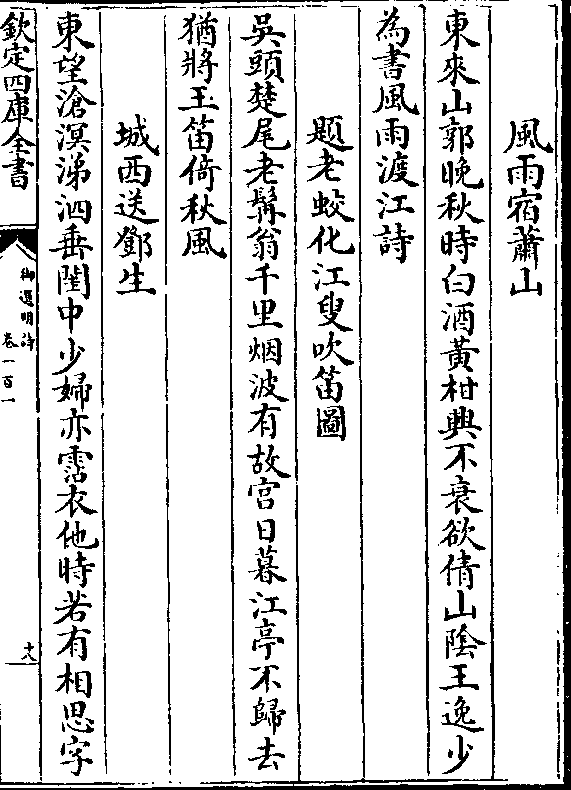 風雨宿蕭山
東來山郭晚秋時白酒黃柑興不衰欲倩山陰王逸少
為書風雨渡江詩
題老蛟化江叟吹笛圖
吳頭楚尾老髯翁千里烟波有故宮日暮江亭不歸去
猶將玉笛倚秋風
城西送鄧生
東望滄溟涕泗垂閨中少婦亦霑衣他時若有相思字
欽定四庫全書
御選明詩
卷一百一
十八